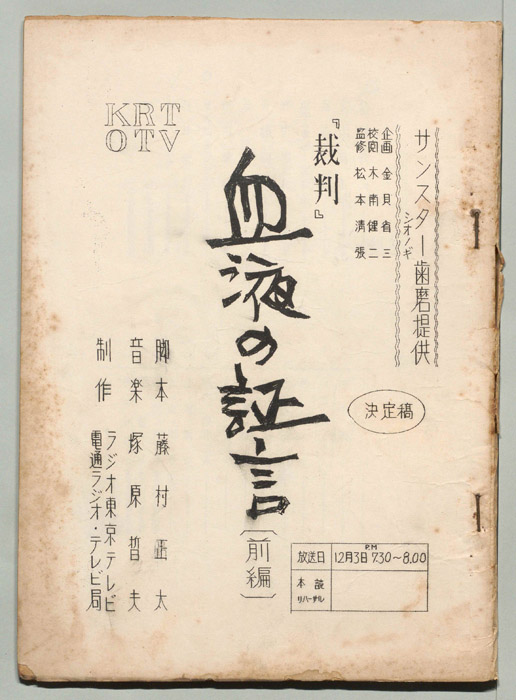 サンスター歯磨提供
シオノギ
企画 金貝省三
校閲 木南健二
監修 松本清張
『裁判』
血液の証言
〔前編〕
KRT
OTV
決定稿
脚本 藤村正太
音楽 塚原哲夫
制作 ラジオ東京テレビ
電通ラジオ・テレビ局
放送日
P.M
12月3日 7.30～8.00
本読
リハーサル